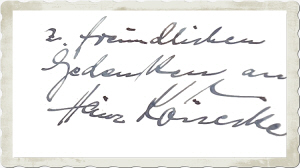 z. freundlichen
Gedenken an
Heinz Könecke